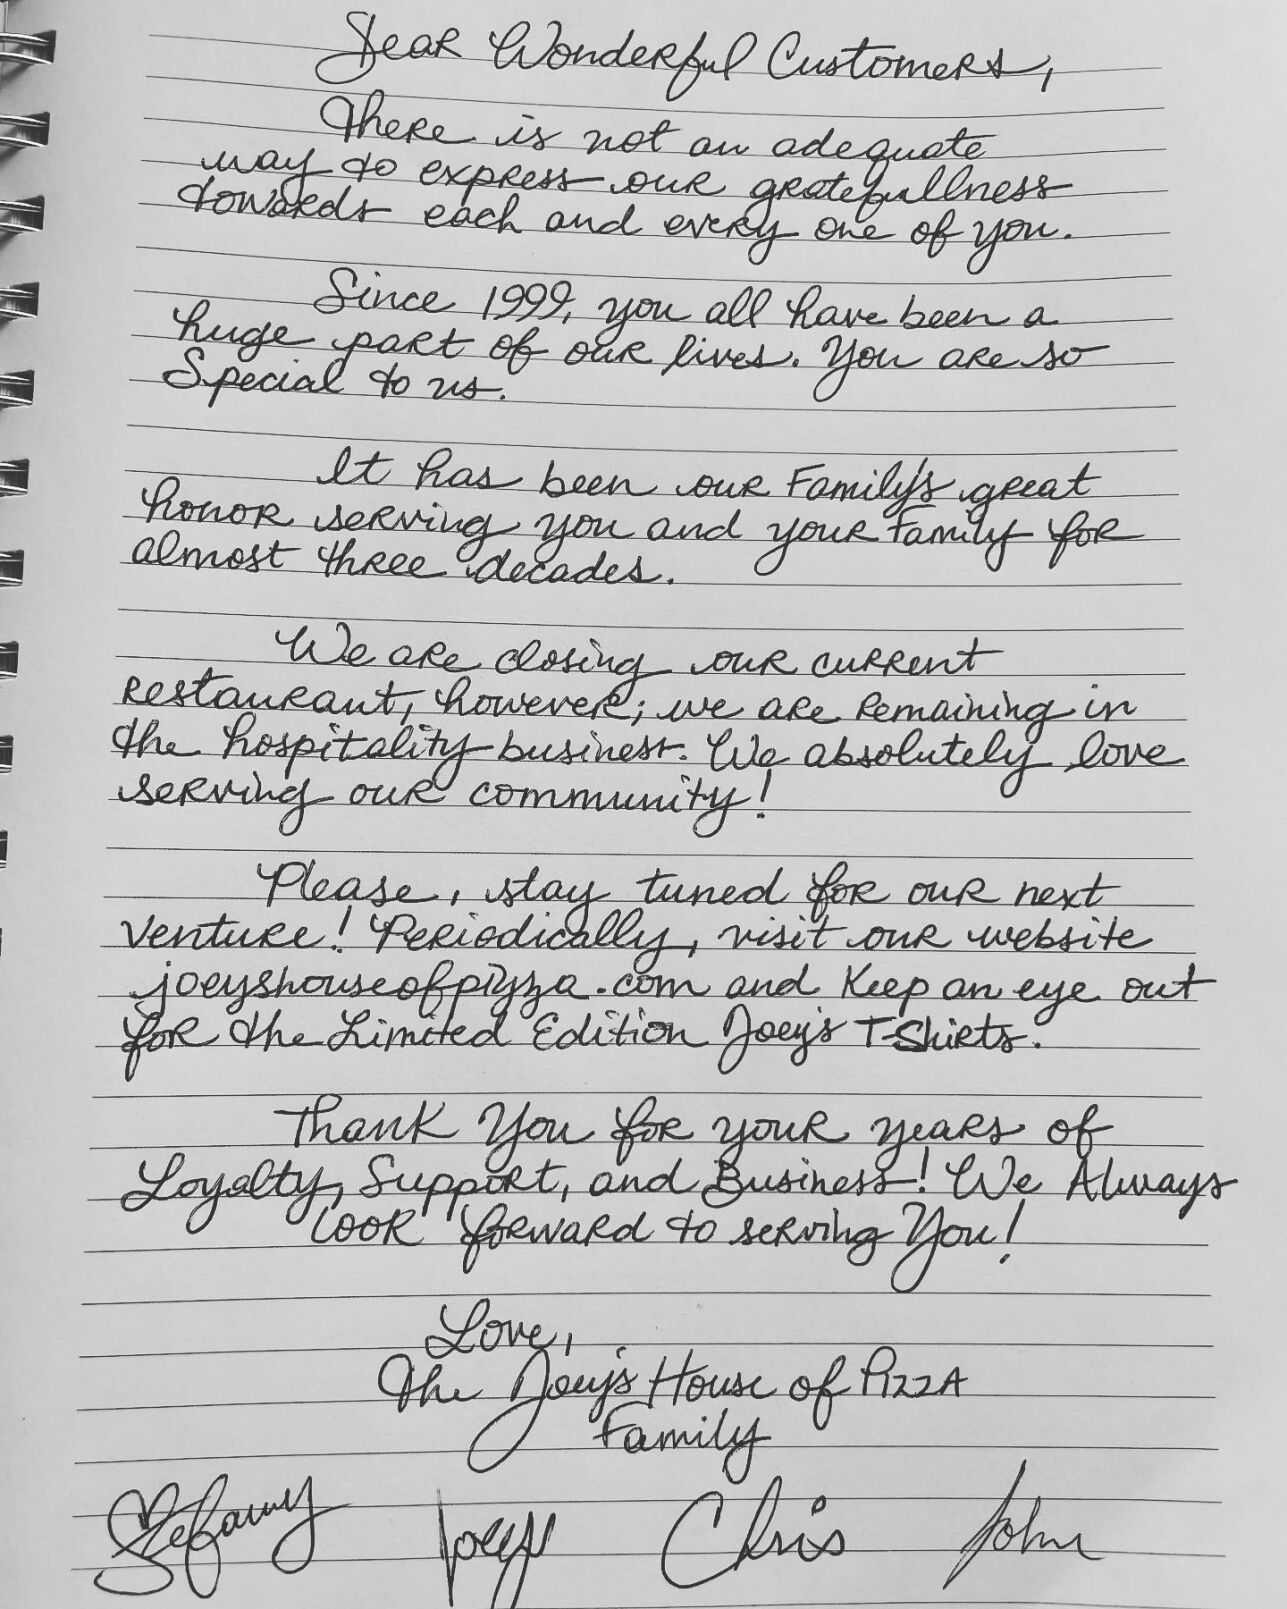 Dear Wonderful Customers,
There is not an adequate
way to express our gratefullness
towards each and every one of you.
Since 1999, you all have been a
huge part of our lives. You are so
Special to us.
It has been our Family's great
honor serving you and your Family for
almost three decades.
We are closing our current
restaurant, however; we are remaining in
the hospitality business. We absolutely love
serving our community!
Please, stay tuned for our next
venture! Periodically, visit our website
joeyshouseofpizza.com and Keep an eye out
for the Limited Edition Joey's T-Shirts.
Thank You for your years of
Loyalty, Support, and Business! We Always
look forward to serving You!
Love,
The Joey's House of Pizza
Family
Stefanny Joey Chris John